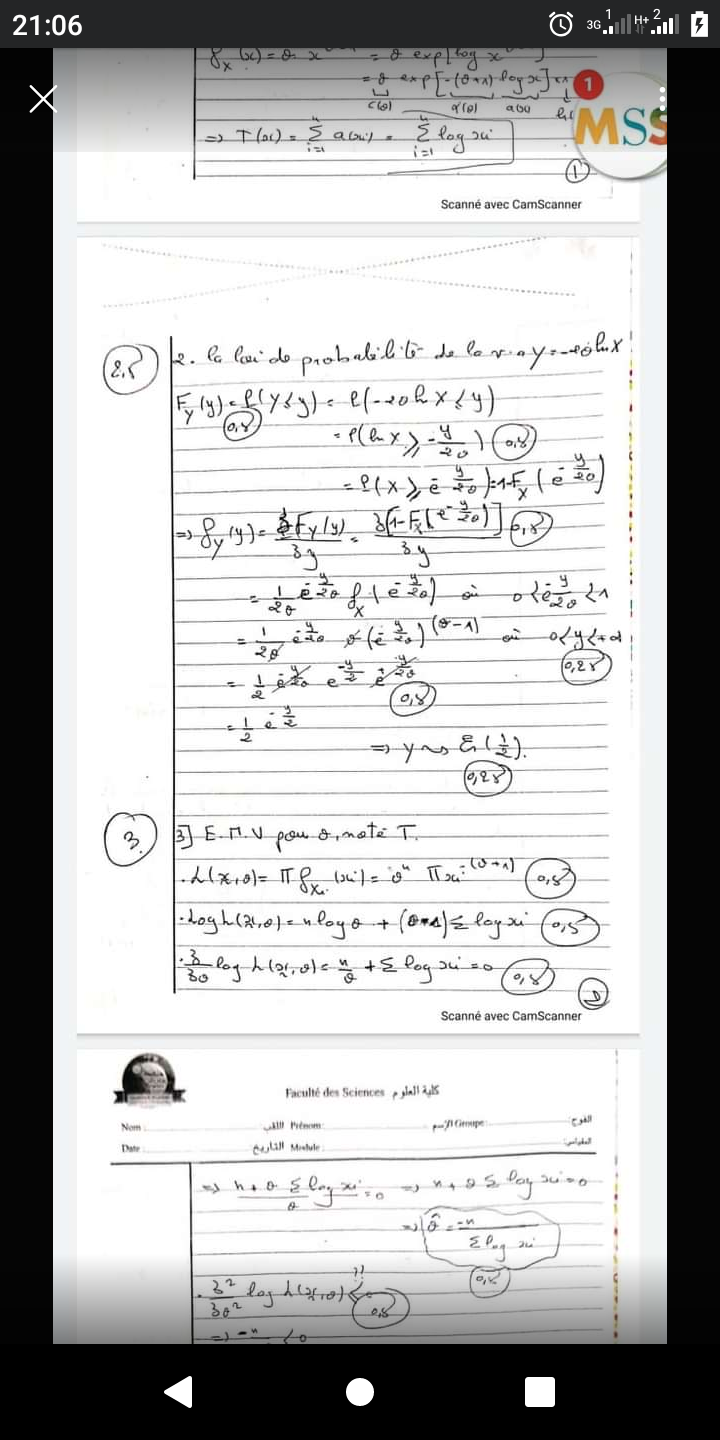 21:06
3G 1 H+ 2
f_X(x) = θ x = θ exp[log x ]
= θ exp[-(θ+1) log x] × 1
c(θ) α(θ) a(x) h(
1
MSS
⇒ T(x) = Σ_{i=1}^{n} a(xi) = Σ_{i=1}^{n} log xi
1
Scanné avec CamScanner
2,5
2. la loi de probabilité de la v.a Y = -2θ ln X
F_Y(y) = P(Y ≤ y) = P(-2θ ln X ≤ y)
0,5
= P(ln X ≥ -y/2θ) 0,5
= P(X ≥ e^{-y/2θ}) = 1-F_X(e^{-y/2θ})
⇒ f_Y(y) = ∂F_Y(y)/∂y = ∂[1-F_X(e^{-y/2θ})]/∂y 0,5
= 1/2θ e^{-y/2θ} f_X(e^{-y/2θ}) où 0<e^{-y/2θ}<1
= 1/2θ e^{-y/2θ} θ (e^{-y/2θ})^{(θ-1)} où 0<y<+∞
0,25
= 1/2 e^{-y/2θ} e^{-y/2} e^{+y/2θ}
0,5
= 1/2 e^{-y/2}
⇒ Y ~ E(1/2).
0,25
3
3] E.M.V pour θ, noté T.
. L(x,θ) = Π f_{Xi}(xi) = θ^n Π xi^{(θ+1)} 0,5
. Log L(x,θ) = n log θ + (θ-1) Σ log xi 0,5
. ∂/∂θ log L(x,θ) = n/θ + Σ log xi = 0 0,5
2
Scanné avec CamScanner
Faculté des Sciences كلية العلوم
Nom : اللقب Prénom: الإسم Groupe: الفوج:
Date : التاريخ Module: المقياس:
⇒ n + θ Σ log xi / θ = 0 ⇒ n + θ Σ log xi = 0
⇒ θ̂ = -n / Σ log xi
0,5
. ∂²/∂θ² log L(x,θ) < ?? 0,5
⇒ -n < 0